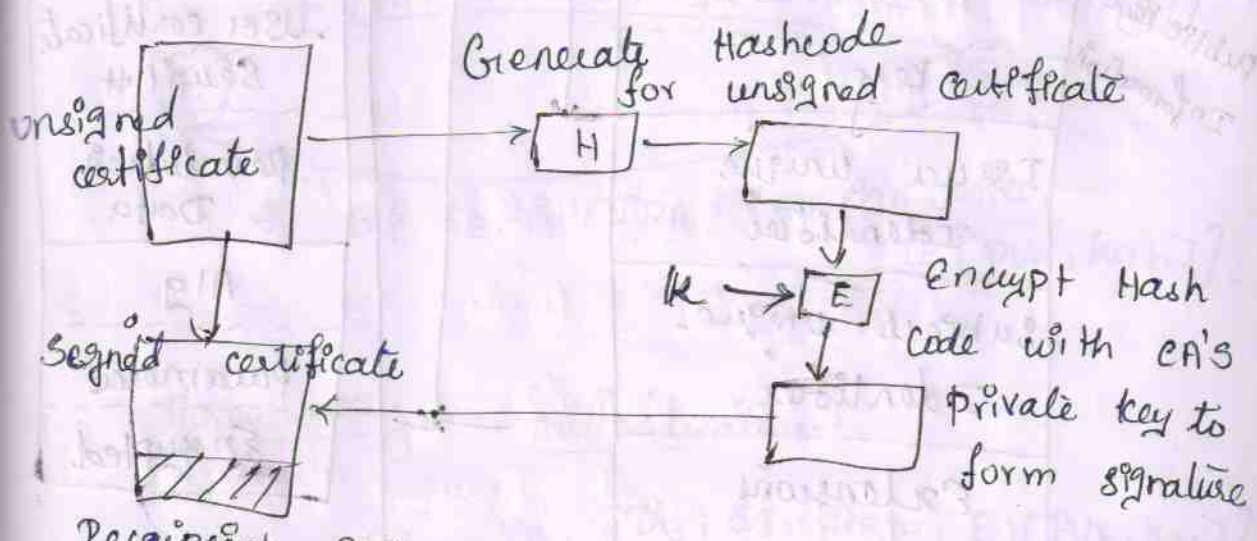 Generate Hashcode
for unsigned certificate
unsigned
certificate
H
K
E
Encrypt Hash
code with CA's
private key to
form signature
Signed certificate